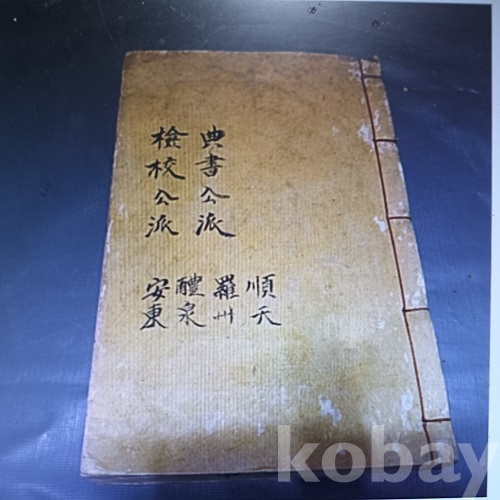 典書公派
檢校公派
順天
羅州
醴泉
安東
kobay